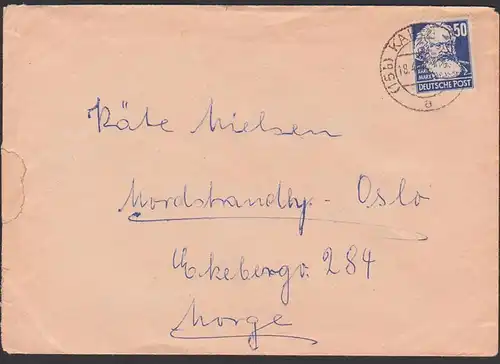 50
(15b) KA
18.4.
MARX
DEUTSCHE POST
a
Käte Nielsen
Nordstrandhg - Oslo
Ekebergv. 284
Norge